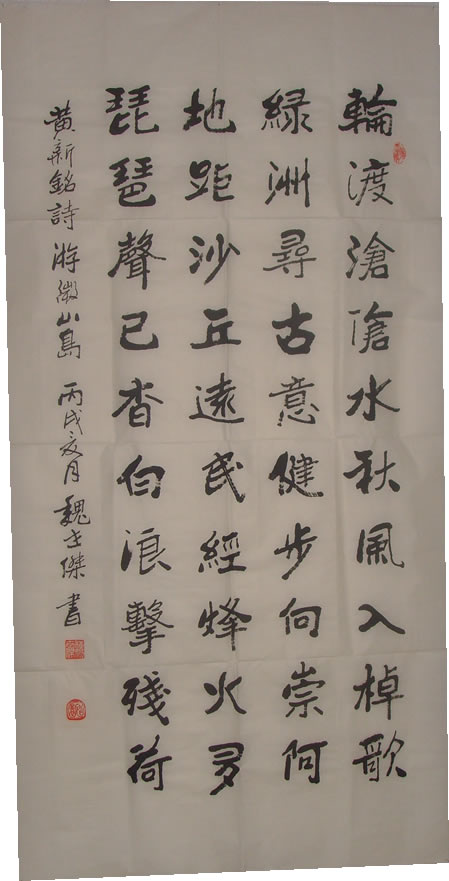 輪渡滄滄水秋風入棹歌
綠洲尋古意健步向崇阿
地距沙丘遠民經烽火多
琵琶聲已杳白浪擊殘荷
黃新銘詩游微山島 丙戌亥月魏士傑書